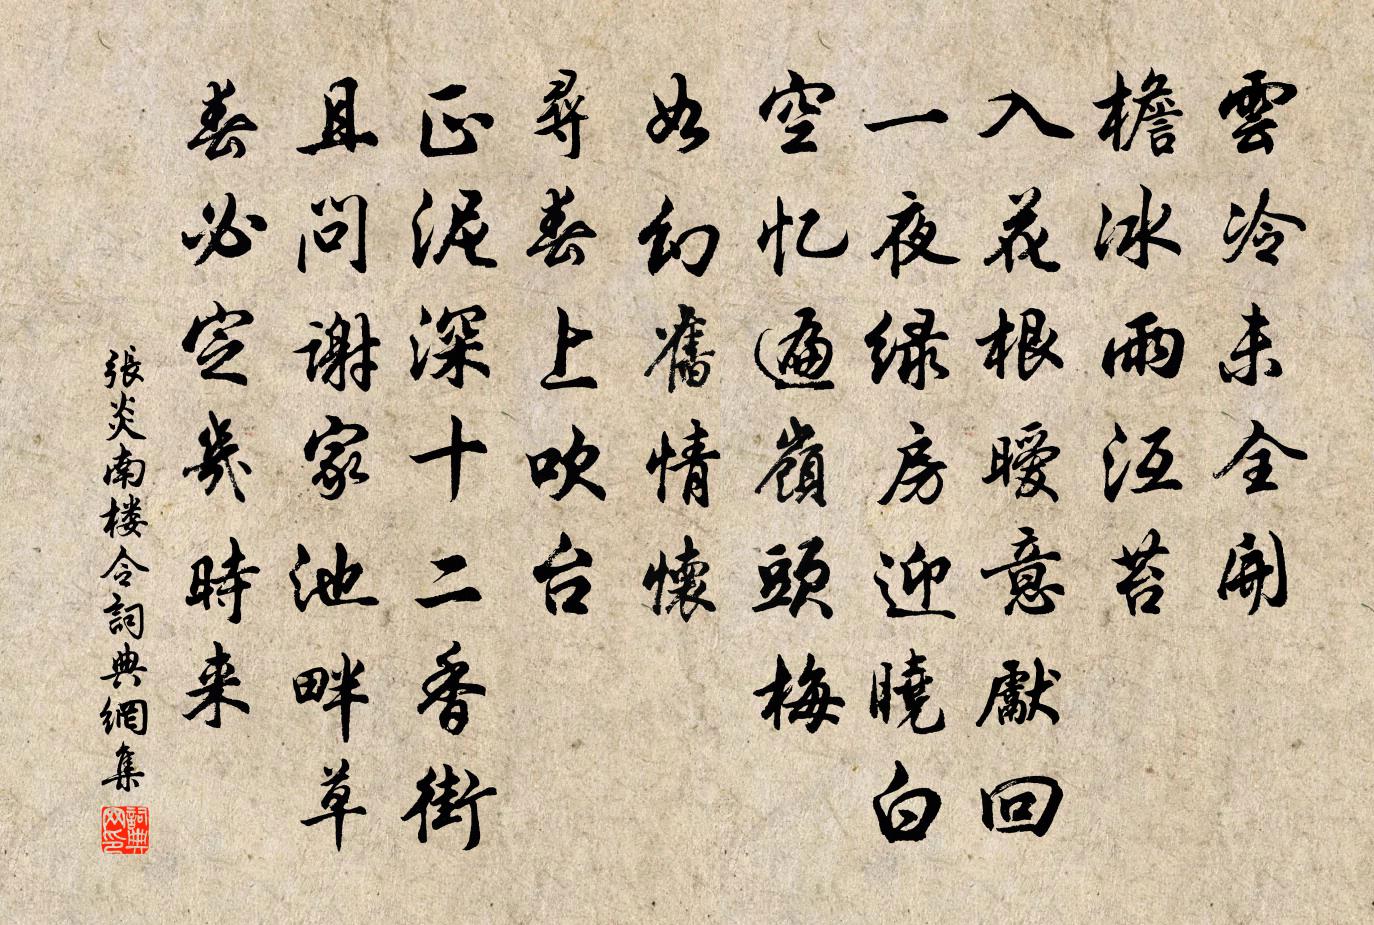 雲冷未全開
檐冰雨沍苔
入花根暖意獻回
一夜绿房迎曉白
空忆遍嶺頭梅
如幻舊情懷
尋春上吹台
正泥深十二香街
且問謝家池畔草
春必定幾時来
張炎南楼令詞典網集
詞典网印